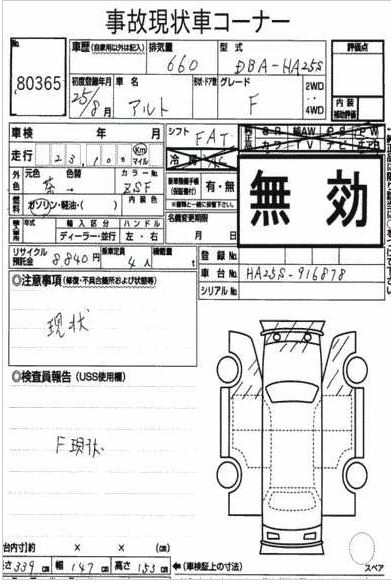 事故現状車コーナー
No.
80365
車歴 (自家用以外は記入)
排気量 660
型式 DBA-HA25S
評価点
初度登録年月 25/8月
車名 アルト
形状・ドア数
グレード F
2WD
4WD
内装
補助評価
車検 年 月
シフト FAT
走行 23,10
Km
マイル
冷房 AC
無効
外色
元色 茶 → 色替
カラーNo. ZSF
新車整備手帳
(保証書付)
有・無
燃料 ガソリン・軽油・( )
内装色
輸入車用
年式
輸入区分 ディーラー・並行
ハンドル 左・右
名義変更期限
月 日
リサイクル預託金 8840円
乗車定員 4人
積載量 t
登録No.
車台No. HA25S-916878
シリアルNo.
◎注意事項 (修復・不具合箇所および状態等)
現状
◎検査員報告 (USS使用欄)
F現状
荷台内寸)約 × × (cm)
長さ 339 幅 147 高さ 153 cm
←(車検証上の寸法)
スペア